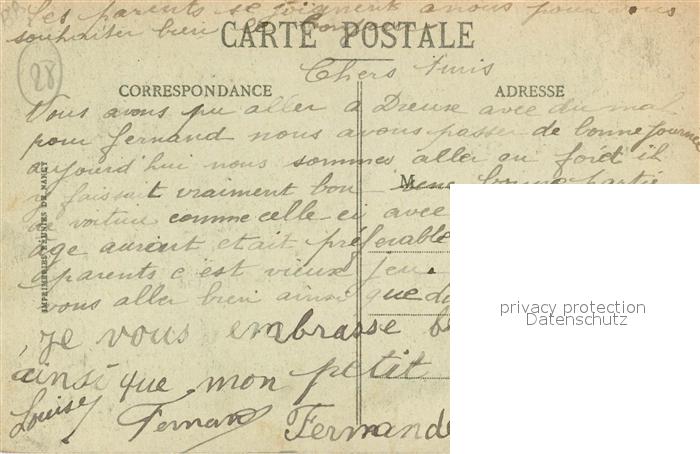 Les parents se joignent a nous pour vous
souhaiter bien le bonjour
CARTE POSTALE
28
Chers Amis
CORRESPONDANCE
ADRESSE
Vous avons pu aller a Dreux avec du mal
pour fernand nous avons passer de bonne journee
aujourd'hui nous sommes aller au forêt il
y faisait vraiment bon une bonne partie
M
de voiture comme celle ci avec
age aurait etait préferable
aparents c'est vieux jeu.
vous aller bien ainsi que
je vous embrasse
ainsi que mon petit
Louise Fernand Fernande
IMPRIMERIES REUNIES DE NANCY
privacy protection
Datenschutz